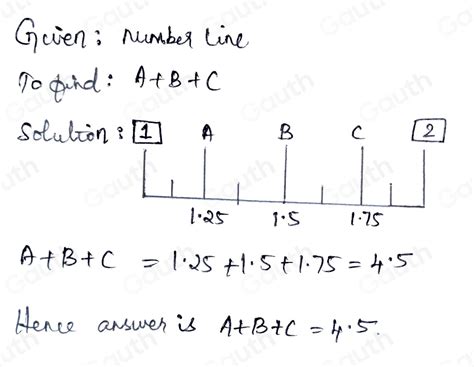 Given: Number line
To find: A+B+C
Solution: 1 A B C 2
1.25 1.5 1.75
A+B+C = 1.25+1.5+1.75 = 4.5
Hence answer is A+B+C = 4.5.